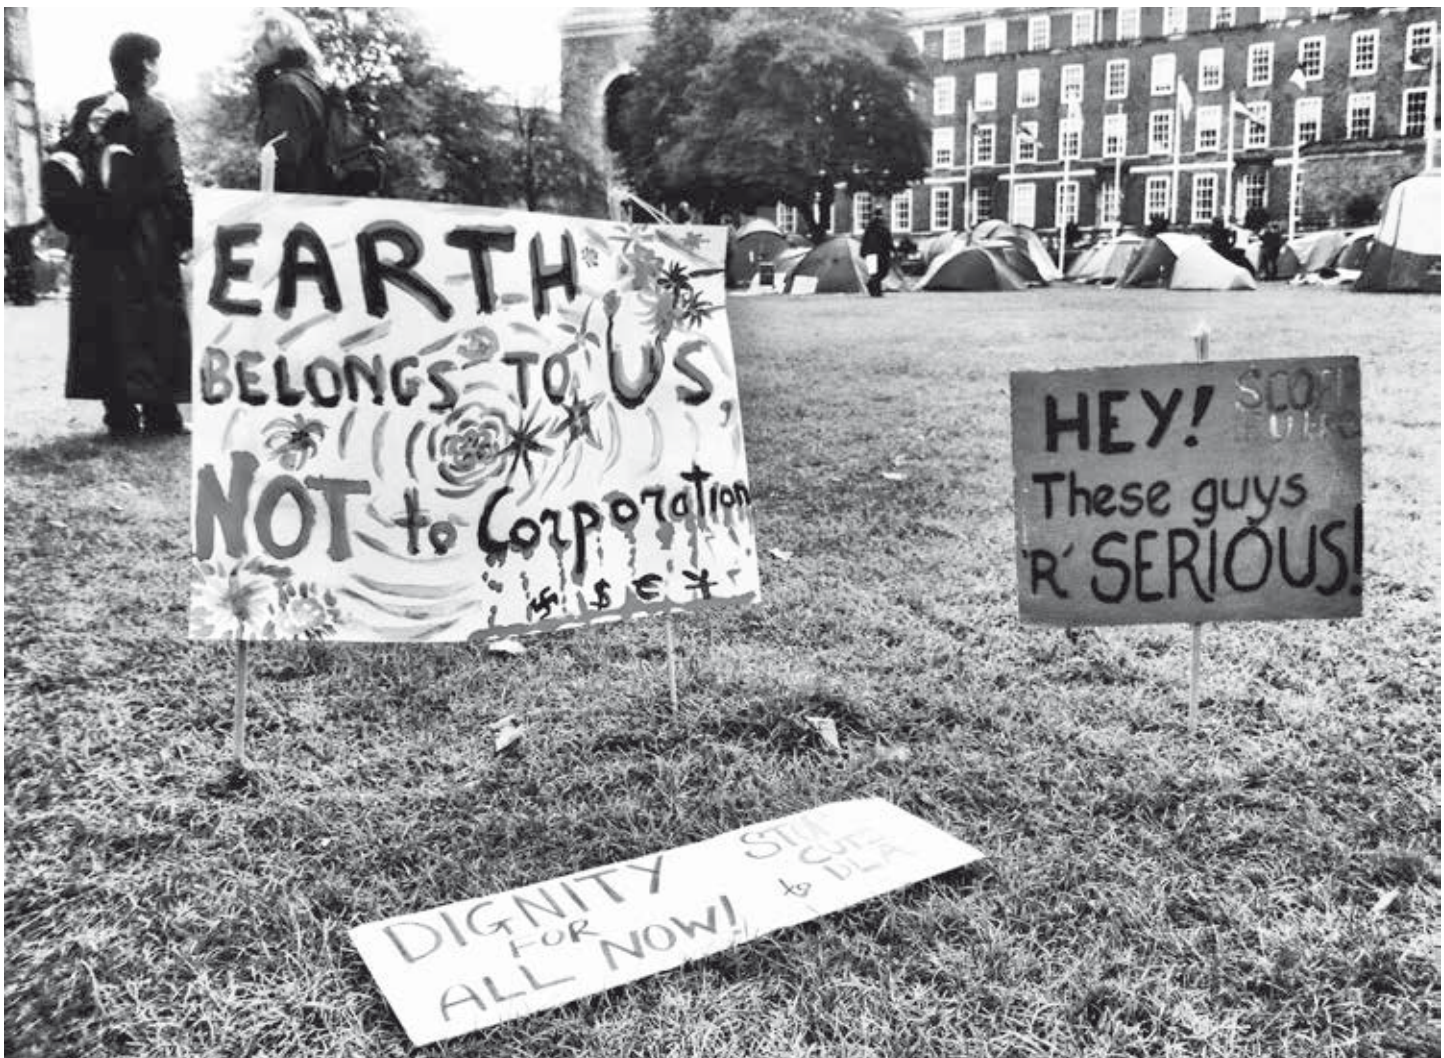 EARTH
BELONGS TO US,
NOT to Corporation
卐 $ € ¥
HEY!
These guys
'R' SERIOUS!
DIGNITY
FOR
ALL NOW!
STOP
CUTS
to DLA